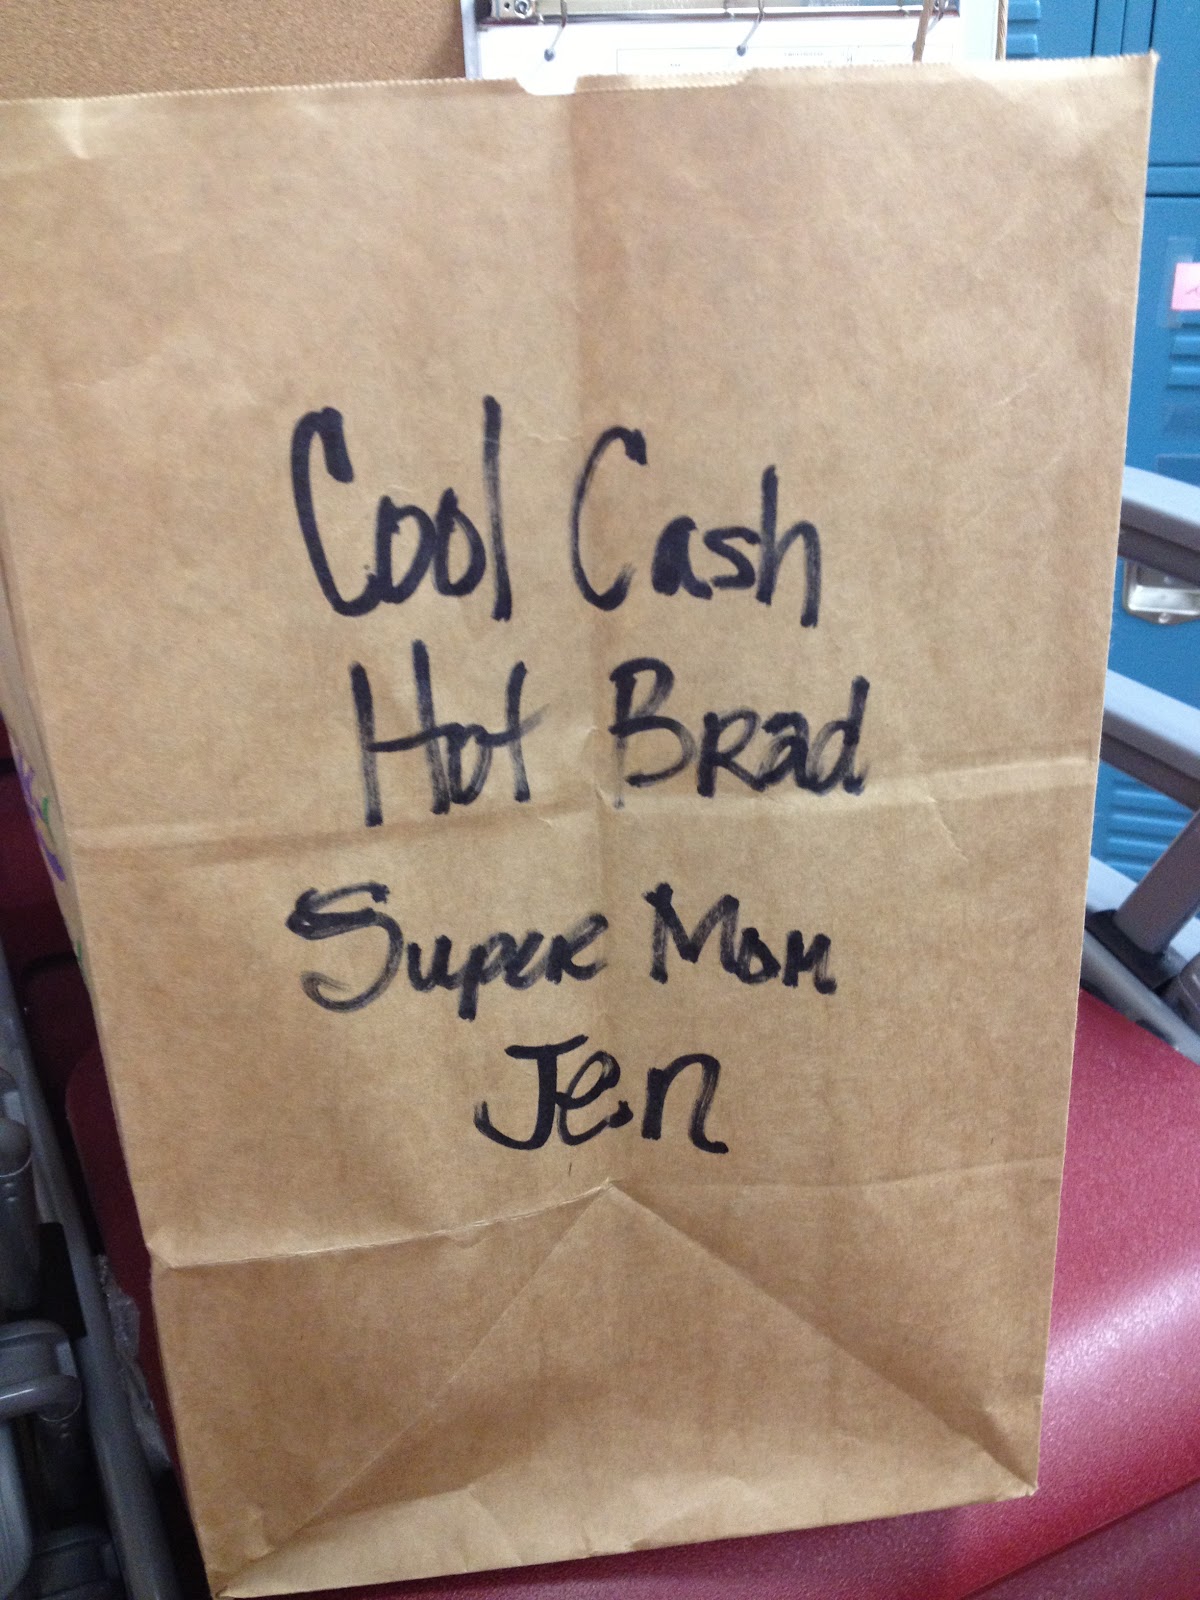 Cool Cash
Hot Brad
Super Mom
Jen